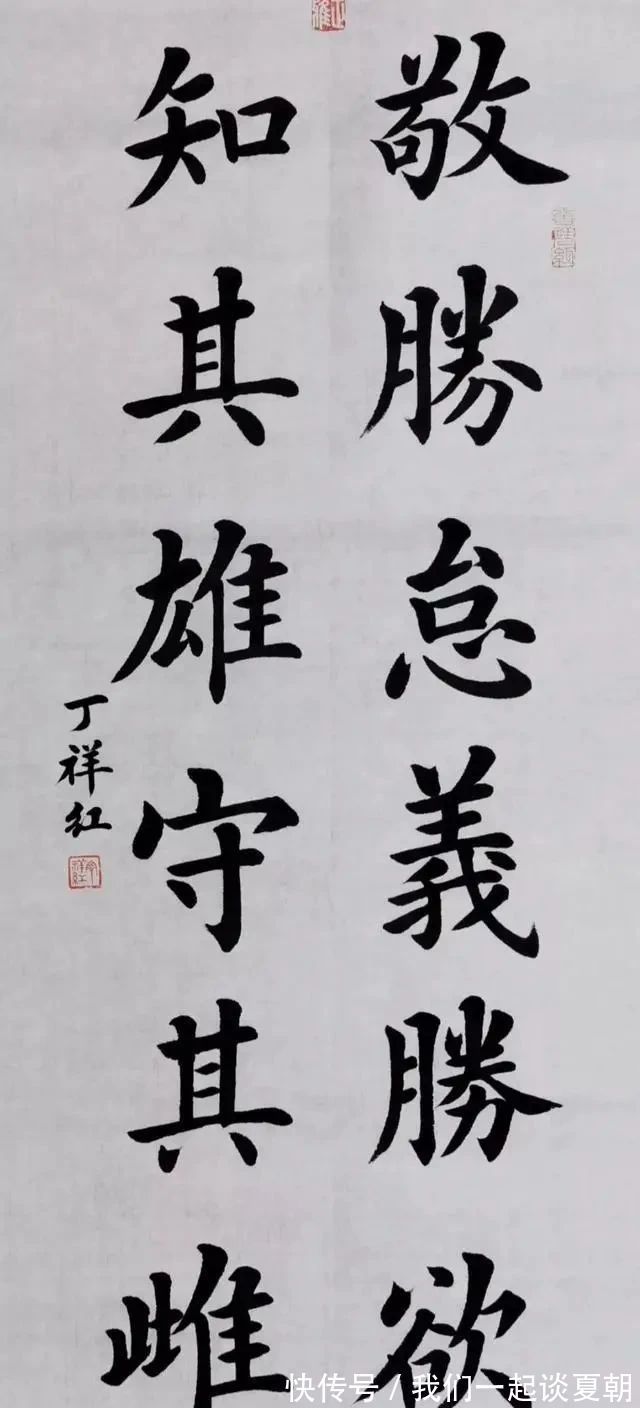 敬勝怠義勝欲
知其雄守其雌
丁祥红
快传号/我们一起谈夏朝